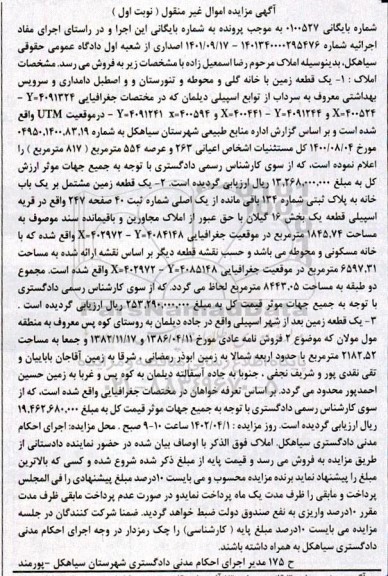 آگهی مزایده اموال غیر منقول ( نوبت اول )
شماره بایگانی ۰۱۰۰۵۲۷ به موجب پرونده به شماره بایگانی این اجرا و در راستای اجرای مفاد
اجرائیه شماره ۱۴۰۱۳۴۰۰۰۰۲۹۵۴۷۶ - ۱۴۰۱/۰۹/۱۷ اصداری از شعبه اول دادگاه عمومی حقوقی
سیاهکل، بدینوسیله املاک مرحوم رضا اسمعیل زاده با مشخصات زیر به فروش می رسد. مشخصات
املاک : ۱- یک قطعه زمین با خانه گلی و محوطه و تنورستان و و اصطبل دامداری و سرویس
بهداشتی معروف به سرداب از توابع اسپیلی دیلمان که در مختصات جغرافیایی ۴۰۹۱۳۲۴=Y -
۴۰۰۵۲۴=X و ۴۰۹۱۲۴۴=Y - ۴۰۰۴۴۱=X و ۴۰۰۵۹۴=x ۴۰۹۱۲۴۱=Y - درموقعیت UTM واقع
شده است و بر اساس گزارش اداره منابع طبیعی شهرستان سیاهکل به شماره ۰۴۹۵۰.۱۴۰۰.۸۳.۱۹
مورخ ۱۴۰۰/۰۸/۰۴ کل مستثنیات اشخاص اعیانی ۲۶۳ و عرصه ۵۵۴ مترمربع ( ۸۱۷ مترمربع )
اعلام نموده است، که از سوی کارشناس رسمی دادگستری با توجه به جمیع جهات موثر ارزش
کل به مبلغ ۱۳.۲۶۸.۰۰۰.۰۰۰ ریال ارزیابی گردیده است. ۲- یک قطعه زمین مشتمل بر یک باب
خانه به پلاک ثبتی شماره ۱۳۴ باقی مانده از یک اصلی شماره ثبت ۴۰ صفحه ۲۴۷ واقع در قریه
اسپیلی قطعه یک بخش ۱۶ گیلان با حق عبور از املاک مجاورین و باقیمانده سند موصوف به
مساحت ۱۸۴۵.۷۴ مترمربع در موقعیت جغرافیایی ۴۰۸۴۱۴۸=Y - ۴۰۲۹۷۲=X واقع شده که با
خانه مسکونی و محوطه می باشد و حسب نقشه قطعه دیگر بر اساس نقشه ارائه شده به مساحت
۶۵۹۷.۳۱ مترمربع در موقعیت جغرافیایی ۴۰۸۵۱۴۸=Y - ۴۰۲۹۷۲=X واقع شده است. مجموع
دو طبقه به مساحت ۸۴۴۳.۰۵ مترمربع لحاظ می گردد. که از سوی کارشناس رسمی دادگستری
با توجه به جمیع جهات موثر قیمت کل به مبلغ ۲۵۳.۲۹۰.۰۰۰.۰۰۰ ریال ارزیابی گردیده است .
۳- یک قطعه زمین بعد از شهر اسپیلی واقع در جاده دیلمان به روستای کوه پس معروف به منطقه
مول مولان که موضوع ۲ فروش نامه عادی مورخ ۱۳۸۶/۰۴/۱۱ و ۱۳۸۲/۱۱/۱۷ و جمعا به مساحت
۲۱۸۲.۵۲ مترمربع با حدود اربعه شمالا به زمین ابوذر رمضانی ، شرقا به زمین آقاجان باباییان و
تقی نقدی پور و شریف نجفی ، جنوبا به جاده آسفالته دیلمان به کوه پس و غربا به زمین حسین
احمدپور محدود می گردد. بر اساس تعرفه خواهان در مختصات جغرافیایی واقع شده است، که از
سوی کارشناس رسمی دادگستری با توجه به جمیع جهات موثر قیمت کل به مبلغ ۱۹.۴۶۲.۶۸۰.۰۰۰
ریال ارزیابی گردیده است. روز مزایده : ۱۴۰۲/۰۴/۱ ساعت ۱۰-۹ صبح . محل مزایده: اجرای احکام
مدنی دادگستری سیاهکل. املاک فوق الذکر با اوصاف بیان شده در حضور نماینده دادستانی از
طریق مزایده به فروش می رسد و قیمت پایه از مبلغ ذکر شده شروع شده و کسی که بالاترین
مبلغ را پیشنهاد نماید برنده مزایده محسوب و می بایست ۱۰درصد مبلغ پیشنهادی را فی المجلس
پرداخت و مابقی را ظرف مدت یک ماه پرداخت نمایدو در صورت عدم پرداخت مابقی ظرف مدت
مقرر ۱۰درصد واریزی به نفع صندوق دولت ضبط خواهد گردید. ضمنا شرکت کنندگان در جلسه
مزایده می بایست ۱۰درصد مبلغ پایه ( کارشناسی) را چک رمزدار در وجه اجرای احکام مدنی
دادگستری سیاهکل به همراه داشته باشند.
ح ۱۷۵ مدیر اجرای احکام مدنی دادگستری شهرستان سیاهکل -پورمند